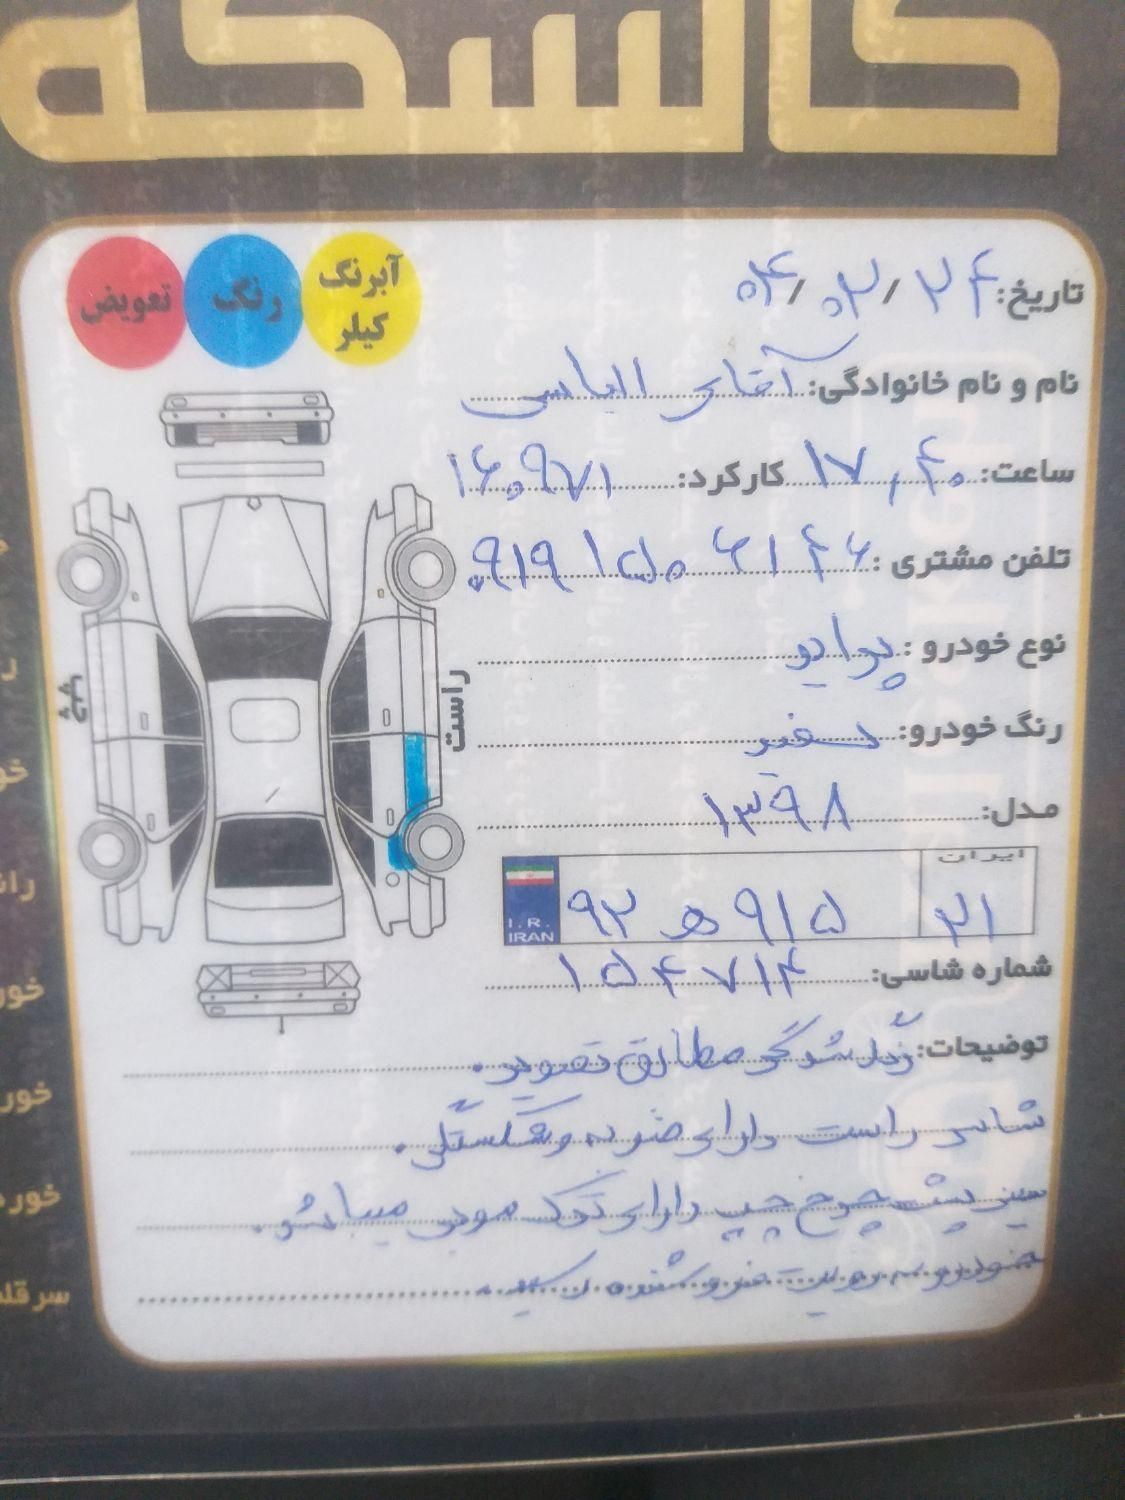 کالسکه
آبرنگ
کیلر
رنگ
تعویض
تاریخ: ۰۴/۰۳/۲۴
نام و نام خانوادگی: آقای الیاسی
ساعت: ۱۷,۴۰ کارکرد: ۱۶۰۹۷۱
تلفن مشتری: ۰۹۱۹۱۵۰۶۱۴۶
نوع خودرو: پرایو
رنگ خودرو: سفید
مدل: ۱۳۹۸
راست
چپ
ایران
I.R.
IRAN
۹۲ ه ۹۱۵ ۲۱
شماره شاسی: ۱۵۴۷۱۴
توضیحات: رنگ شدگی مطابق تصویر.
شاسی راست دارای ضربه و شکستگی.
سینی پشت چرخ چپ دارای ترک مویی میباشد.
خودرو به رویت فروشنده رسید.
خو
ران
خور
خور
خورد
سر قلم